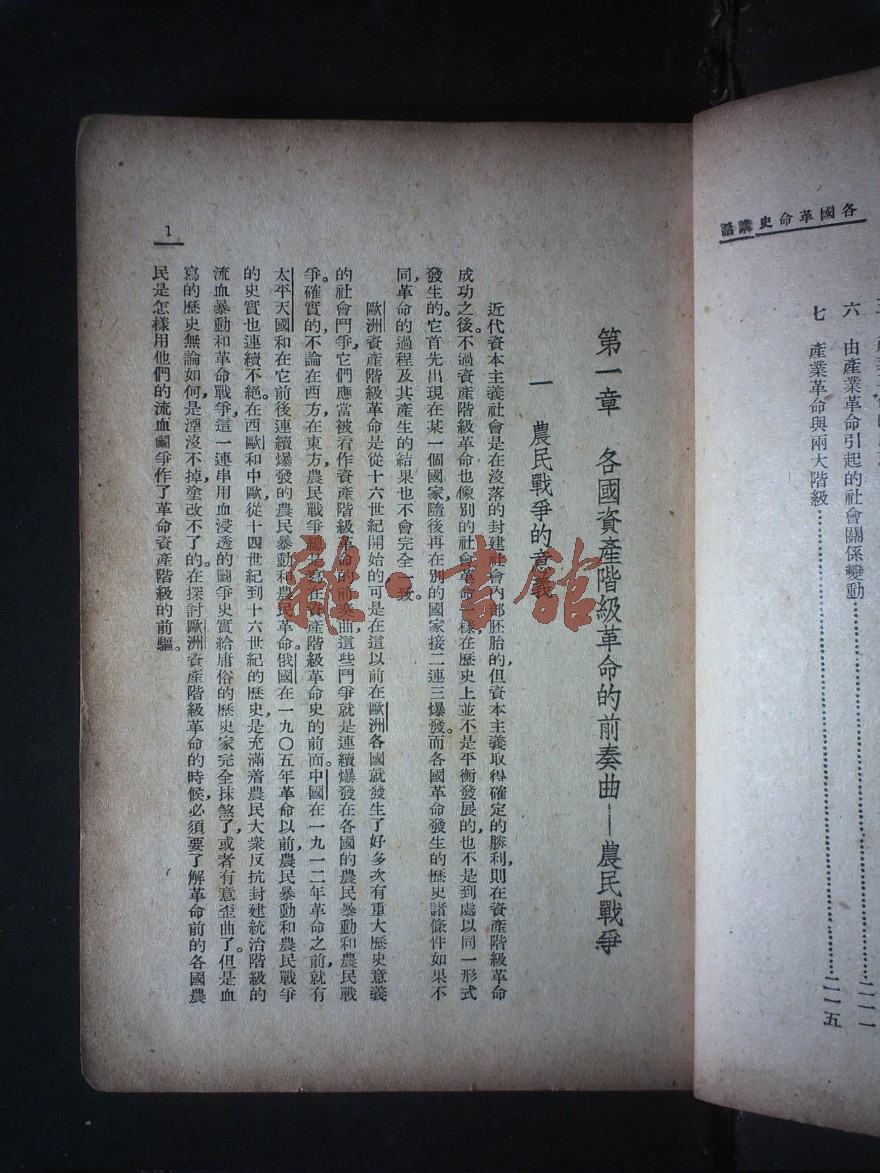 各國革命史講話
六　由產業革命引起的社會關係變動……二一一
七　產業革命與兩大階級……二一五
第一章　各國資產階級革命的前奏曲——農民戰爭
一　農民戰爭的意義
近代資本主義社會是在沒落的封建社會內部胚胎的，但資本主義取得確定的勝利，則在資產階級革命
成功之後。不過資產階級革命也像別的社會革命一樣，在歷史上並不是平衡發展的，也不是到處以同一形式
發生的。它首先出現在某一個國家，隨後再在別的國家接二連三爆發。而各國革命發生的歷史諸條件如果不
同，革命的過程及其產生的結果也不會完全一致。
歐洲資產階級革命是從十六世紀開始的，可是在這以前，在歐洲各國就發生了好多次有重大歷史意義
的社會鬥爭，它們應當被看作資產階級革命的前奏曲，這些鬥爭就是連續爆發在各國的農民暴動和農民戰
爭。確實的，不論在西方，在東方，農民戰爭總是寫在資產階級革命史的前面。中國在一九一二年革命之前，就有
太平天國和在它前後連續爆發的農民暴動和農民革命。俄國在一九〇五年革命以前，農民暴動和農民戰爭
的史實也連續不絕。在西歐和中歐，從十四世紀到十六世紀的歷史，是充滿着農民大衆反抗封建統治階級的
流血暴動和革命戰爭，這一連串用血浸透的鬭爭史實給庸俗的歷史家完全抹煞了，或者有意歪曲了。但是血
寫的歷史無論如何，是湮沒不掉，塗改不了的。在探討歐洲資產階級革命的時候，必須要了解革命前的各國農
民是怎樣用他們的流血鬭爭作了革命資產階級的前驅。
1
雜·書館